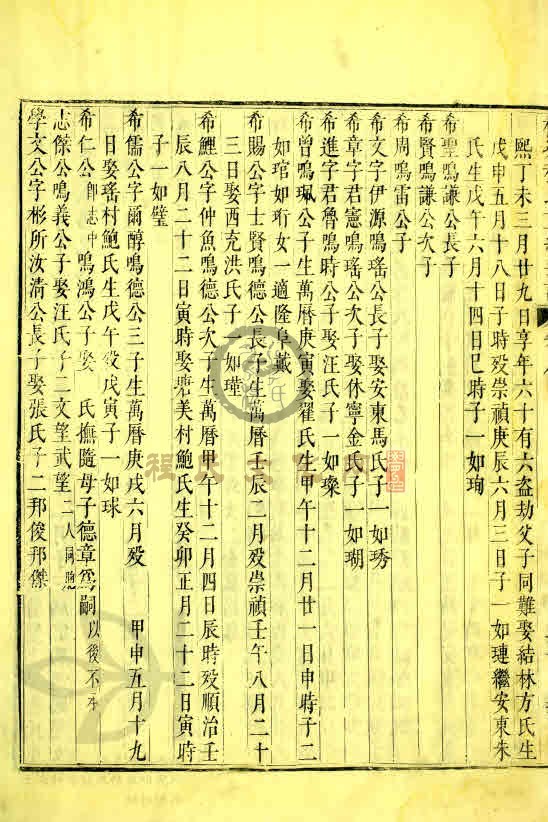 熙丁未三月廿九日享年六十有六盜劫父子同難娶結林方氏生
戊申五月十八日子時歿崇禎庚辰六月三日子一如璉繼安東朱
氏生戊午六月十四日巳時子一如珣
希聖鳴謙公長子
希賢鳴謙公次子
希周鳴雷公子
希文字伊源鳴瑤公長子娶安東馬氏子一如琇
希章字君憲鳴瑤公次子娶休寧金氏子一如瑚
希進字君魯鳴時公子娶汪氏子一如璨
希曾鳴珮公子生萬曆庚寅娶翟氏生甲午十二月廿一日申時子二
如琯如珩女一適隆阜戴
希賜公字士賢鳴德公長子生萬曆壬辰二月歿崇禎壬午八月二十
三日娶西充洪氏子一如瑾
希鯉公字仲魚鳴德公次子生萬曆甲午十二月四日辰時歿順治壬
辰八月二十二日寅時娶塘美村鮑氏生癸卯正月二十二日寅時
子一如璧
希儒公字爾醇鳴德公三子生萬曆庚戌六月歿 甲申五月十九
日娶瑤村鮑氏生戊午歿戊寅子一如球
希仁公即志中鳴鴻公子娶 氏撫隨母子德章爲嗣以後不本
志傑公鳴義公子娶汪氏子二文望武望二人同胞
學文公字彬所汝清公長子娶張氏子二邦俊邦傑
程氏文化网